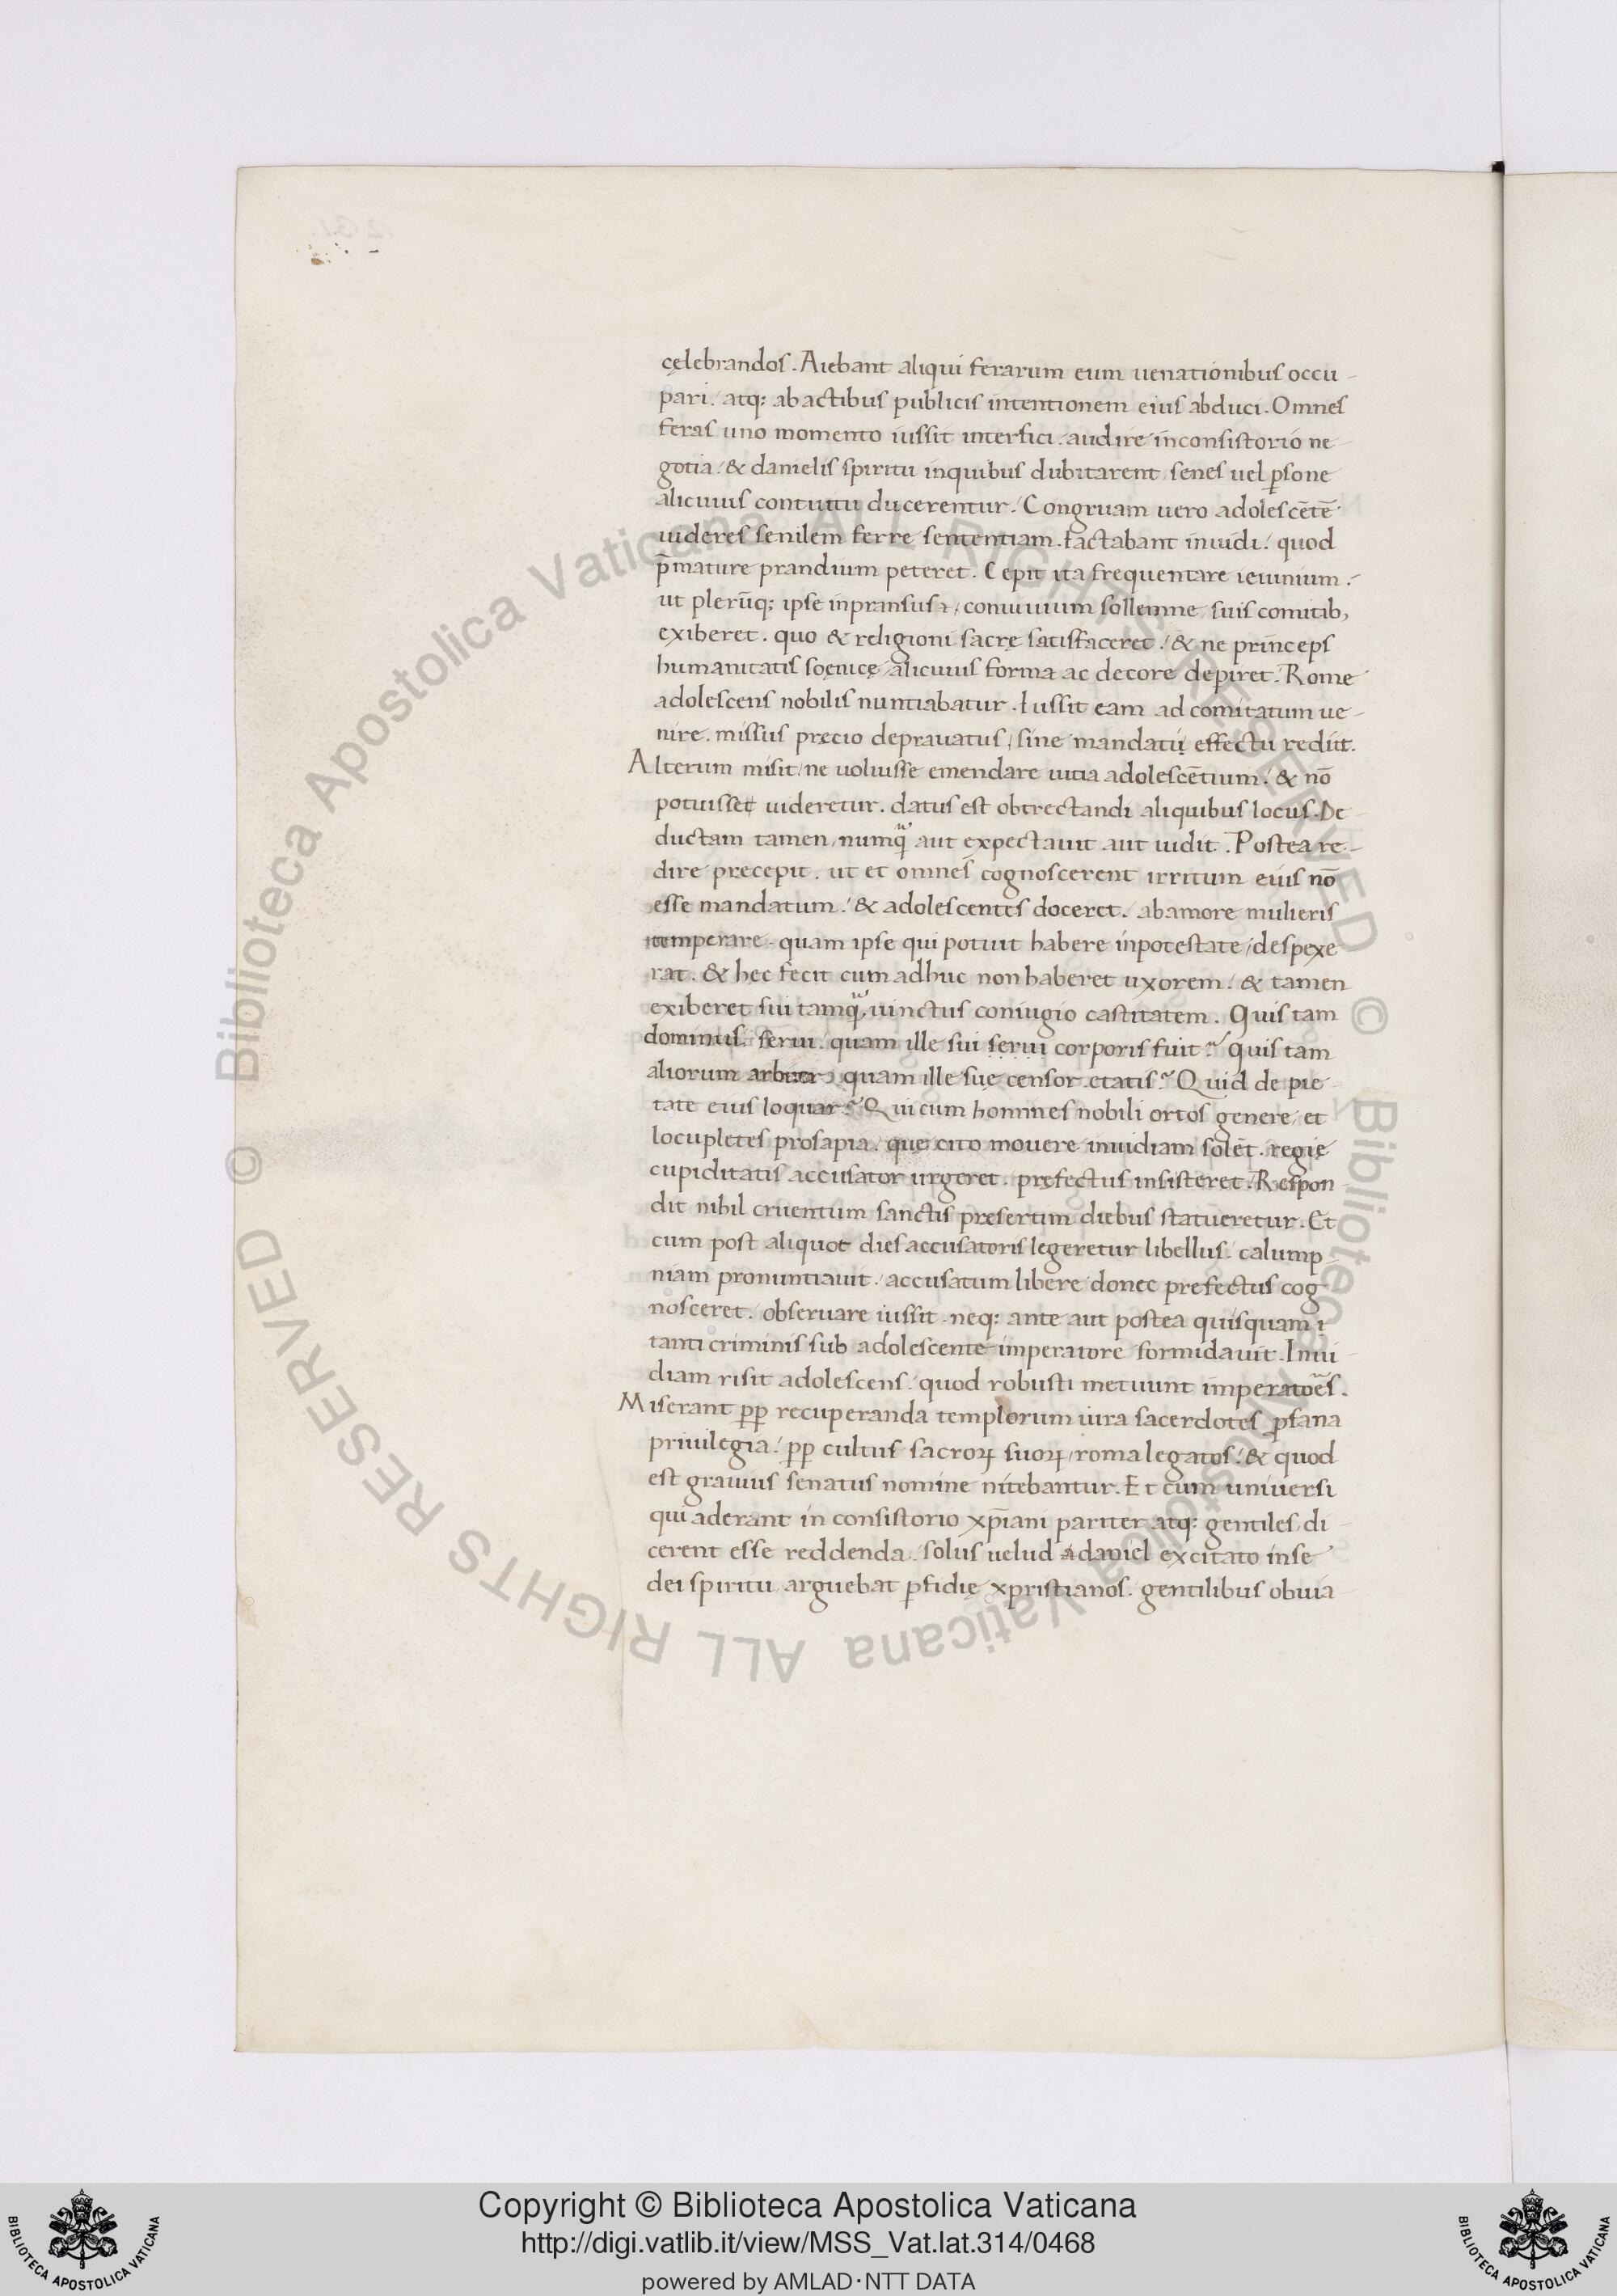 cęlebrandos. Aiebant aliqui ferarum eum uenationibus occu-
pari. atq; ab actibus publicis intentionem eius abduci. Omnes
feras uno momento iussit interfici. audire in consistorio ne-
gotia. & danielis spiritu in quibus dubitarent senes uel psone
alicuius contuitu ducerentur. Congruam uero adolescētē
uideres senilem ferre sententiam. Iactabant inuidi. quod
p̄mature prandium peteret. Cepit ita frequentare ieiunium.
ut plerūq; ipse inpransus, conuiuium sollemne suis comitib,
exiberet. quo & religioni sacrę satisfaceret. & ne princeps
humanitatis alicuius forma ac decore depiret. Rome
adolescens nobilis nuntiabatur. Iussit eam ad comitatum ue-
nire. missus precio deprauatus, sine mandatu effectu rediit.
Alterum misit, ne uoluisse emendare uitia adolescētium. & nō
potuisset uideretur. datus est obtrectandi aliquibus locus. De
ductam tamen, numq aut expectauit aut uidit. Postea re-
dire precepit. ut et omnes cognoscerent irritum eius nō
esse mandatum. & adolescentes doceret. ab amore mulieris
temperare. quam ipse qui potuit habere in potestate, despexe
rat. & hec fecit cum adhuc non haberet uxorem. & tamen
exiberet sui tamq uinctus coniugio castitatem. Quis tam
dominus serui. quam ille sui serui corporis fuit? Quis tam
aliorum arbiter quam ille suę censor etatis? Quid de pie-
tate eius loquar? Qui cum homines nobili ortos genere, et
locupletes prosapia. quę cito mouere inuidiam solēt. regię
cupiditatis accusator urgeret. pręfectus insisteret. Respon
dit nihil cruentum sanctis presertim diebus statueretur. Et
cum post aliquot dies accusatoris legeretur libellus. calump-
niam pronuntiauit. accusatum libere donec prefectus cog
nosceret. obseruare iussit. neq; ante aut postea quisquam ī
tanti criminis sub adolescente imperatore formidauit. Inui
diam risit adolescens. quod robusti metuunt imperatoēs.
Miserant pp recuperanda templorum iura sacerdotes, pfana
priuilegia. pp cultus sacroꝝ suoꝝ, roma legatos. & quod
est grauius senatus nomine nitebantur. Et cum uniuersi
qui aderant in consistorio xp̄iani pariter atq; gentiles, di
cerent esse reddenda. solus uelud daniel excitato in se
dei spiritu arguebat pfidię xpristianos. gentilibus obuia
Copyright © Biblioteca Apostolica Vaticana
http://digi.vatlib.it/view/MSS_Vat.lat.314/0468
powered by AMLAD·NTT DATA